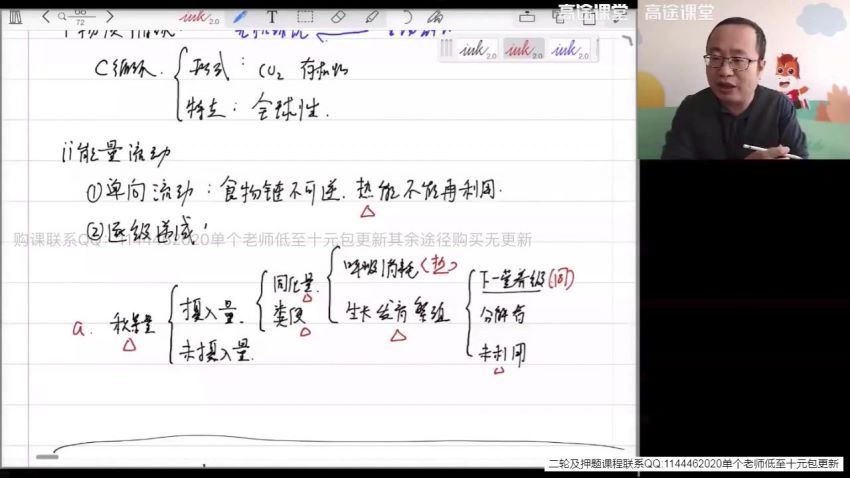 72
ink 2.0
ink 2.0 ink 2.0 ink 2.0
高途课堂 高途课堂
C循环 形式：CO2 有机物
特点：全球性.
ii能量流动
①单向流动：食物链不可逆.热能不能再利用.
②逐级递减：
购课联系QQ：1144462020单个老师低至十元包更新其余途径购买无更新
a.
摄入量
未摄入量.
同化量
粪便
呼吸消耗(热)
生长发育繁殖
下一营养级(同)
分解者
未利用
二轮及押题课程联系QQ:1144462020单个老师低至十元包更新